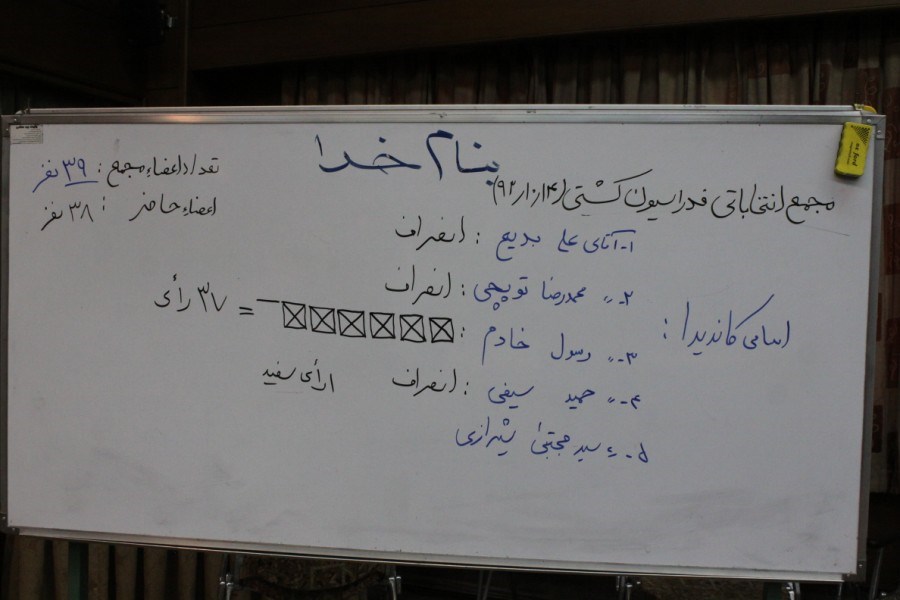 بنام خدا
مجمع انتخاباتی فدراسیون کشتی (۹۲/۱۰/۱۴)
تعداد اعضاء مجمع : ۳۹ نفر
اعضاء حاضر : ۳۸ نفر
اسامی کاندیدا :
۱- آقای علی بدیع : انصراف
۲- 〃 محمدرضا توپچی : انصراف
۳- 〃 رسول خادم : = ۳۷ رأی
۴- 〃 حمید سیفی : انصراف
۱ رأی سفید
۵- 〃 سید مجتبی شیرازی